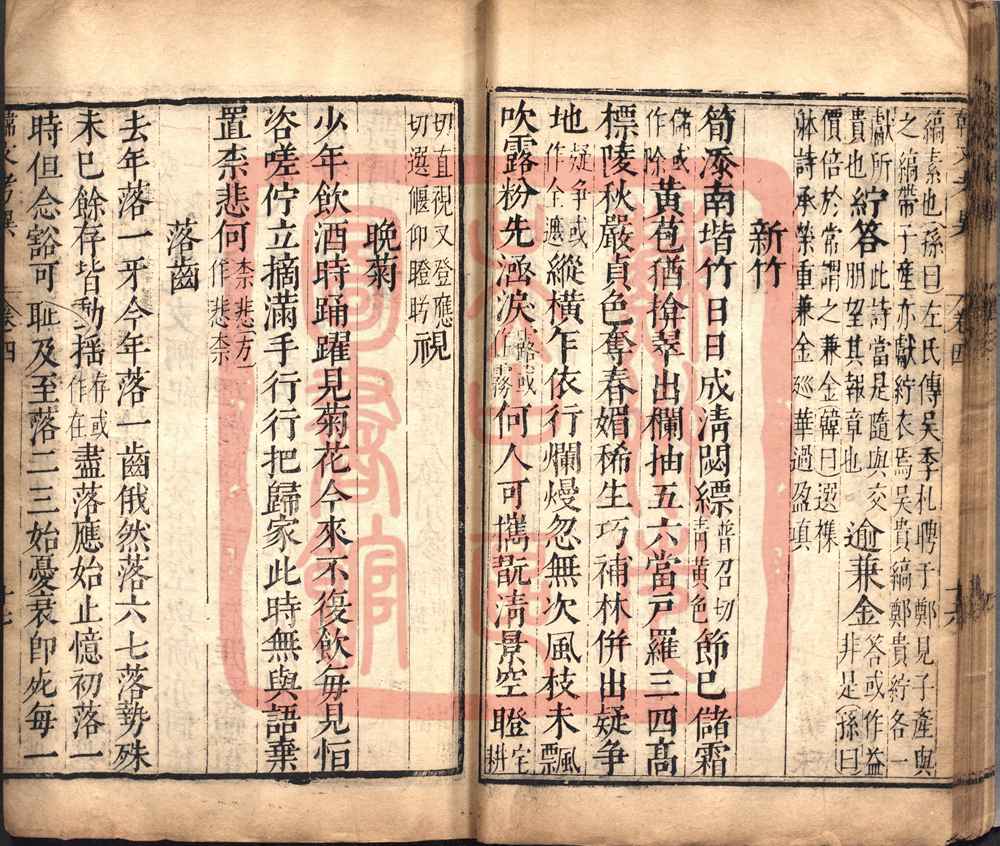 縞素也孫曰左氏傳吳季札聘于鄭見子產與
之縞帶子產亦獻紵衣焉吳貴縞鄭貴紵各一
獻所貴也
紵答
此詩當是隨與交答或作益
朋望其報章也
逾兼金
非是孫曰
價倍於常謂之兼金韓曰選襍
詠詩承榮重兼金巡華過盈瑱
新竹
筍添南堦竹日日成淸閟縹
普召切
靑黃色
節已儲霜
儲或
作除
黃苞猶揜翠出欄抽五六當戶羅三四高
標陵秋嚴貞色奪春媚稀生巧補林併出疑爭
地
疑爭或
作全遮
縱橫乍依行爛熳忽無次風枝未飄
吹露粉先涵淚
何人可攜翫淸景空瞪
宅
耕
切直視又登應
切選偃仰瞪眝
視
晚菊
少年飮酒時踊躍見菊花今來不復飮每見恒
咨嗟佇立摘滿手行行把歸家此時無與語棄
置柰悲何
柰悲方
作悲柰
落齒
去年落一牙今年落一齒俄然落六七落勢殊
未已餘存皆動搖
存或
作在
盡落應始止憶初落一
時但念豁可恥及至落二三始憂衰卽死每一